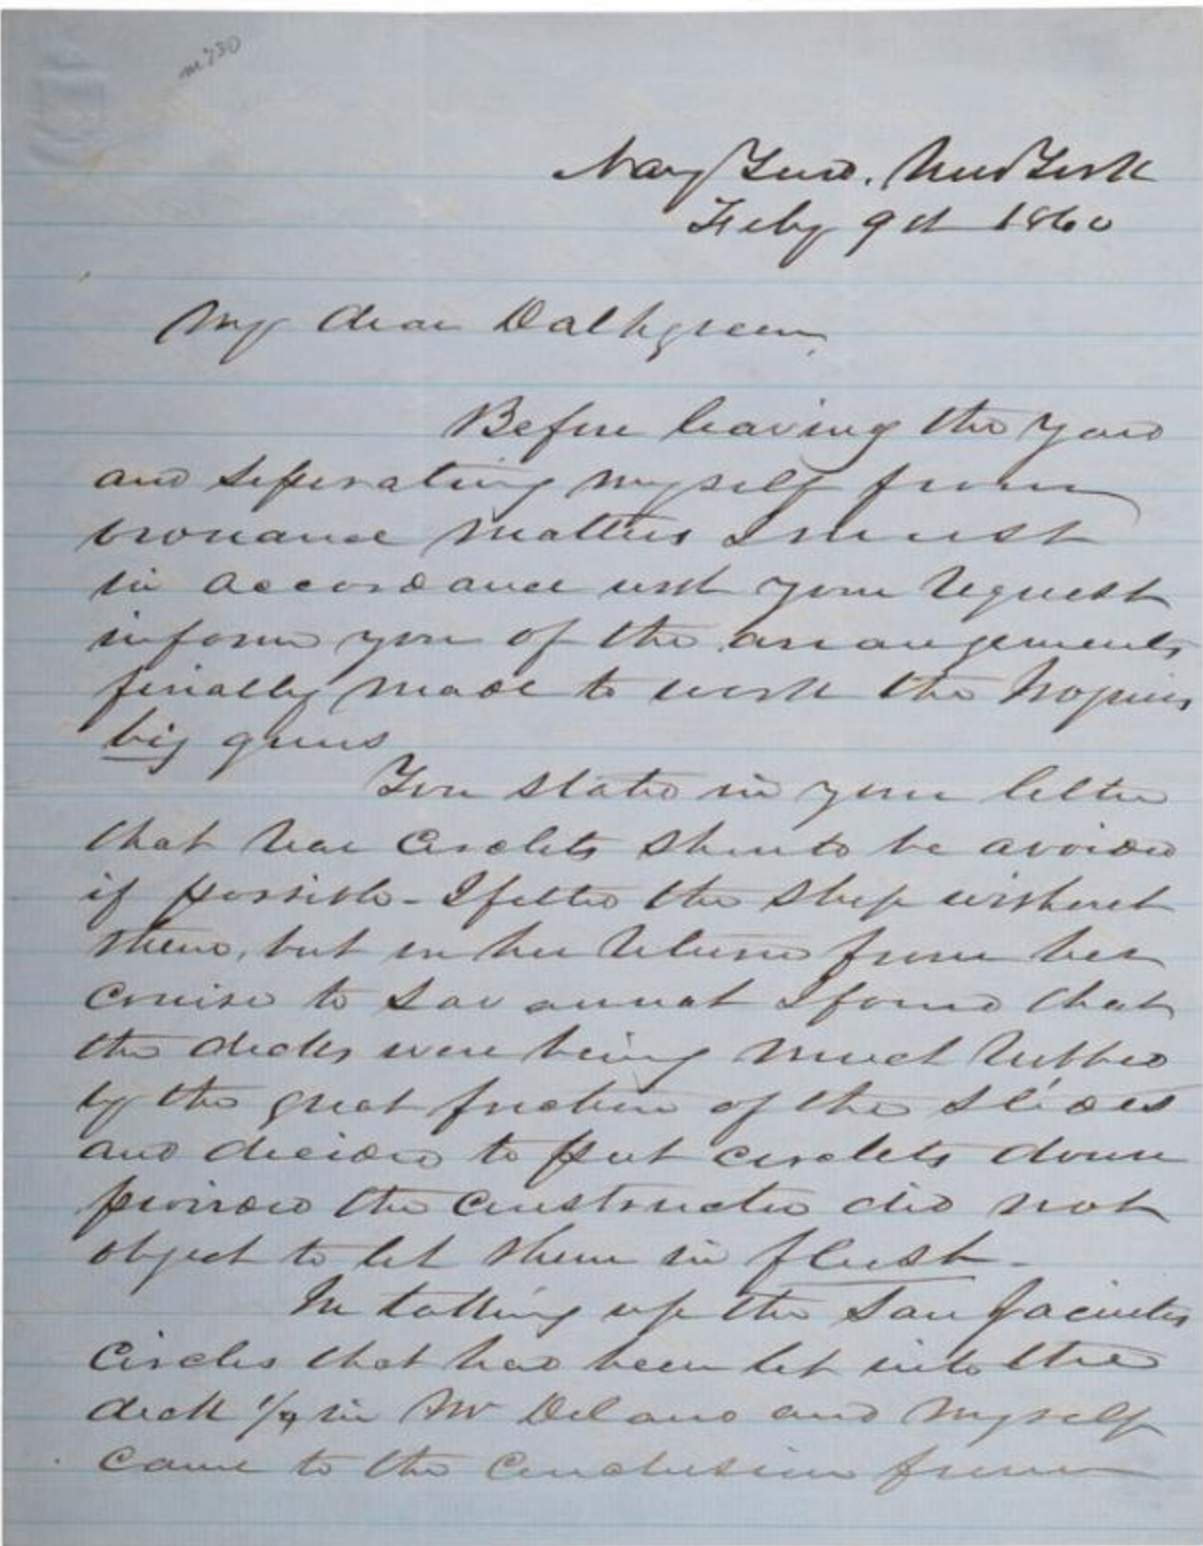 m 730
Navy Yard. New York
Feby 9th 1860
My dear Dalhgreen,
Before leaving the yard
and seperating myself from
ordnance matters I must
in accordance with your request
inform you of the arrangements
finally made to work the
big guns
You stated in your letter
that rear circlets should be avoided
if possible - I fitted the ship without
them, but on her return from her
cruise to Savannah I found that
the decks were being much rubbed
by the great friction of the slides
and decided to put circlets down
provided the constructor did not
object to let them in flush -
In taking up the San Jacintos
circles that had been let into the
deck in Mr Delano and myself
came to the conclusion from